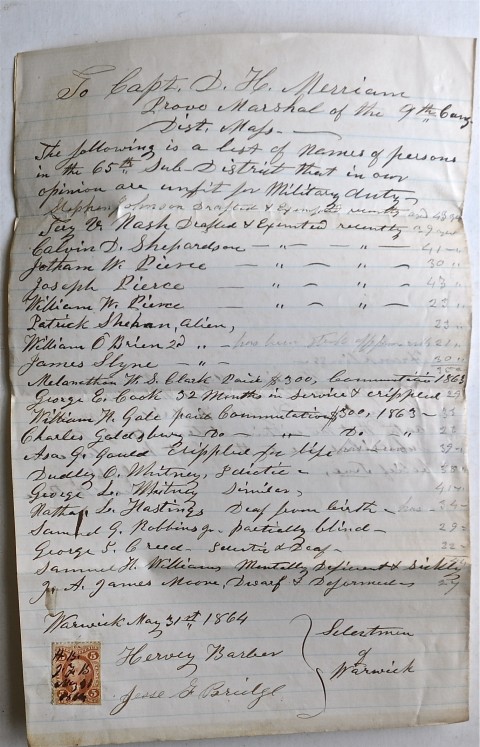 To Capt. D. H. Merriam
Provo Marshal of the 9th Cong
Dist. Mass.
The following is a list of names of persons
in the 65th Sub-District that in our
opinion are unfit for Military duty
Stephen Johnson Drafted & Exempted recently aged 43 yrs
V. Nash Drafted & Exempted recently
Calvin D. Shepardson — " — " — 41 "
Jotham W. Pierce — " — " — 30 "
Joseph Pierce — " — " — 43 "
William W. Pierce — " — " — 23 "
Patrick Shehan, alien, 23 "
William O'Brien 2d " — has been 21 "
James Slyne — " — 30 "
Melancthon W. S. Clark Paid $300, Commutation 1863
George E. Cook 32 Months in service & crippled 29
William H. Gale paid Commutation $300, 1863 —
Charles Goldsbury — Do — " Do. "
Asa G. Gould Crippled for life 39
Dudley O. Whitney, Sciatic — 38
George L. Whitney Similar, 41
Nathan L. Hastings Deaf from birth — 34
Samuel G. Robbins jr. partially blind — 29
George S. Creed — & Deaf — 22
Samuel H. Williams Mentally Deficient & Sickly
J. A. James Moore, Dwarf & Deformed 29
Warwick May 31st, 1864
Hervey Barber
Jesse F. Bridge
Selectmen
of
Warwick
5 5
H. B.
J. F. B
May 31
1864